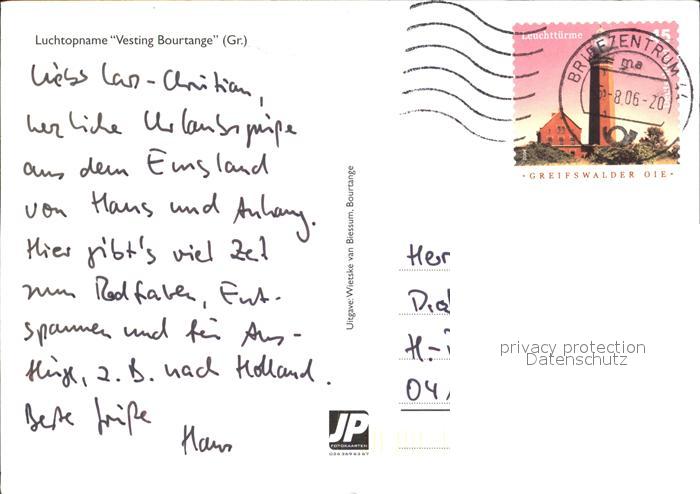 Luchtopname "Vesting Bourtange" (Gr.)
Liebs Lars-Christian,
herzliche Urlaubsgrüße
aus dem Emsland
von Hans und Anhang.
Hier gibt's viel Zeit
zum Radfahren, Ent-
spannen und für Aus-
flüge, z. B. nach Holland.
Beste Grüße
Hans
Uitgave: Wietske van Biessum, Bourtange
JP
FOTOKAARTEN
Leuchttürme
BRIEFZENTRUM
ma
-8.06-20
·GREIFSWALDER OIE·
Her
H-
04
privacy protection
Datenschutz